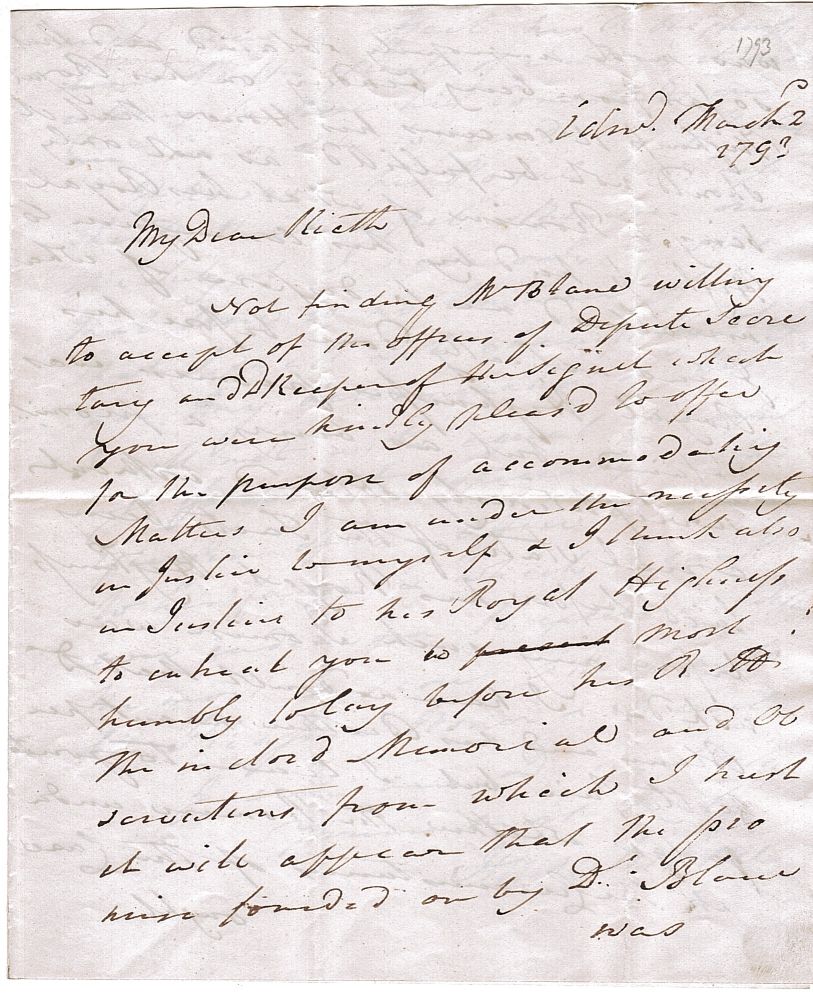 1793
Edinr. March 2
1793
My Dear Kieth
Not finding Mr Blane willing
to accept of the offices of Depute Secre
tary and D Keeper of the Signet which
you were kindly pleas'd to offer
for the purpose of accommodating
Matters I am under the necessity
in Justice to myself & I think also
in Justice to his Royal Highness
to intreat you to present most
humbly to lay before his R Hs
the inclos'd Memorial and Ob
servations from which I trust
it will appear that the pro
mise founded on by Dr. Blane
was